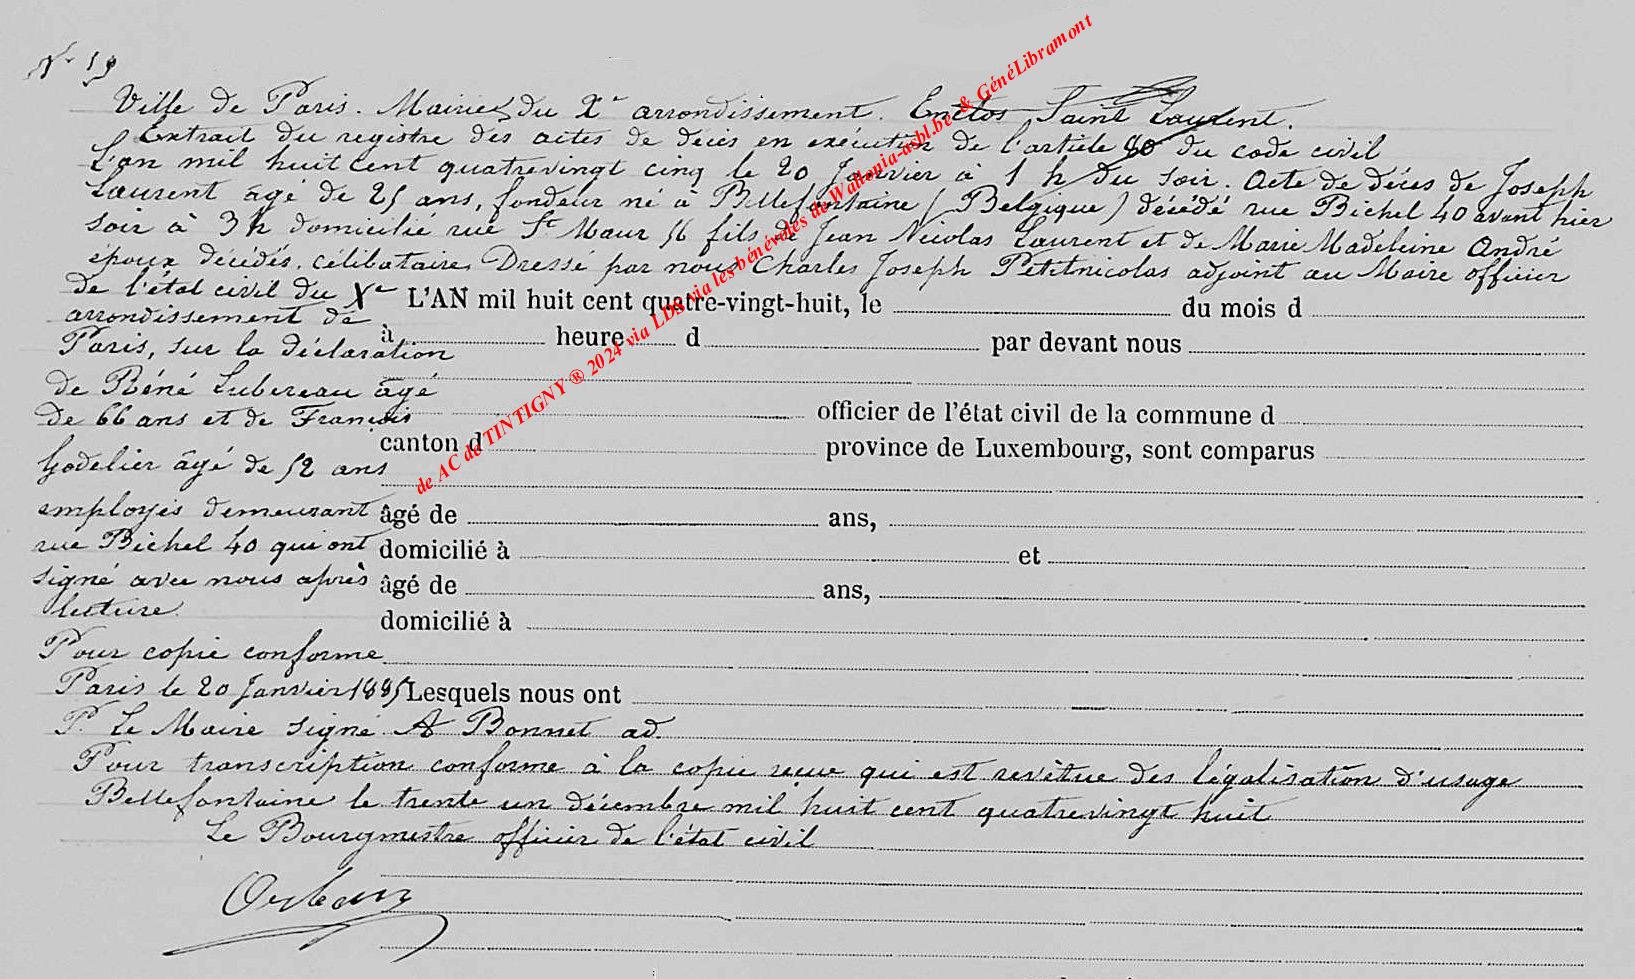 N° 19
Ville de Paris. Mairie du Xe arrondissement. Enclos Saint Laurent.
Extrait du registre des actes de décès en exécution de l'article 80 du code civil
L'an mil huit cent quatrevingt cinq le 20 Janvier à 1 h du soir. Acte de décès de Joseph
Laurent âgé de 25 ans, fondeur né à Bellefontaine (Belgique) décédé rue Bichel 40 avant hier
soir à 3 h domicilié rue St Maur 56 fils de Jean Nicolas Laurent et de Marie Madeleine André
époux décédés, célibataire. Dressé par nous Charles Joseph Petitnicolas adjoint au Maire officier
de l'état civil du Xe
arrondissement de
Paris, sur la déclaration
de Réné Lubereau âgé
de 66 ans et de François
Godelier âgé de 52 ans
employés demeurant
rue Bichel 40 qui ont
signé avec nous après
lecture.
Pour copie conforme
Paris le 20 Janvier 1885
P. Le Maire signé A Bonnet ad.
L'AN mil huit cent quatre-vingt-huit, le du mois d
à heure d par devant nous
officier de l'état civil de la commune d
canton d province de Luxembourg, sont comparus
âgé de ans,
domicilié à et
âgé de ans,
domicilié à
Lesquels nous ont
Pour transcription conforme à la copie reçue qui est revêtue des légalisation d'usage
Bellefontaine le trente un décembre mil huit cent quatrevingt huit
Le Bourgmestre officier de l'état civil
de AC de TINTIGNY ® 2024 via LDS via les bénévoles de Wallonia-asbl.be & GénéLibramont